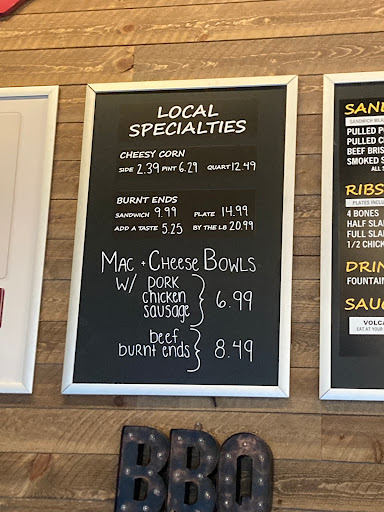 LOCAL
SPECIALTIES
CHEESY CORN
SIDE 2.39 PINT 6.29 QUART 12.49
BURNT ENDS
SANDWICH 9.99 PLATE 14.99
ADD A TASTE 5.25 BY THE LB 20.99
MAC + CHEESE BOWLS
W/ PORK
chicken
sausage } 6.99
beef
burnt ends } 8.49
SAN
SANDWICH MEA
PULLED PO
PULLED C
BEEF BRIS
SMOKED S
ALL S
RIBS
PLATES INCLU
4 BONES
HALF SLA
FULL SLA
1/2 CHICK
DRIN
FOUNTAIN
SAUC
VOLCA
EAT AT YOUR
BBQ